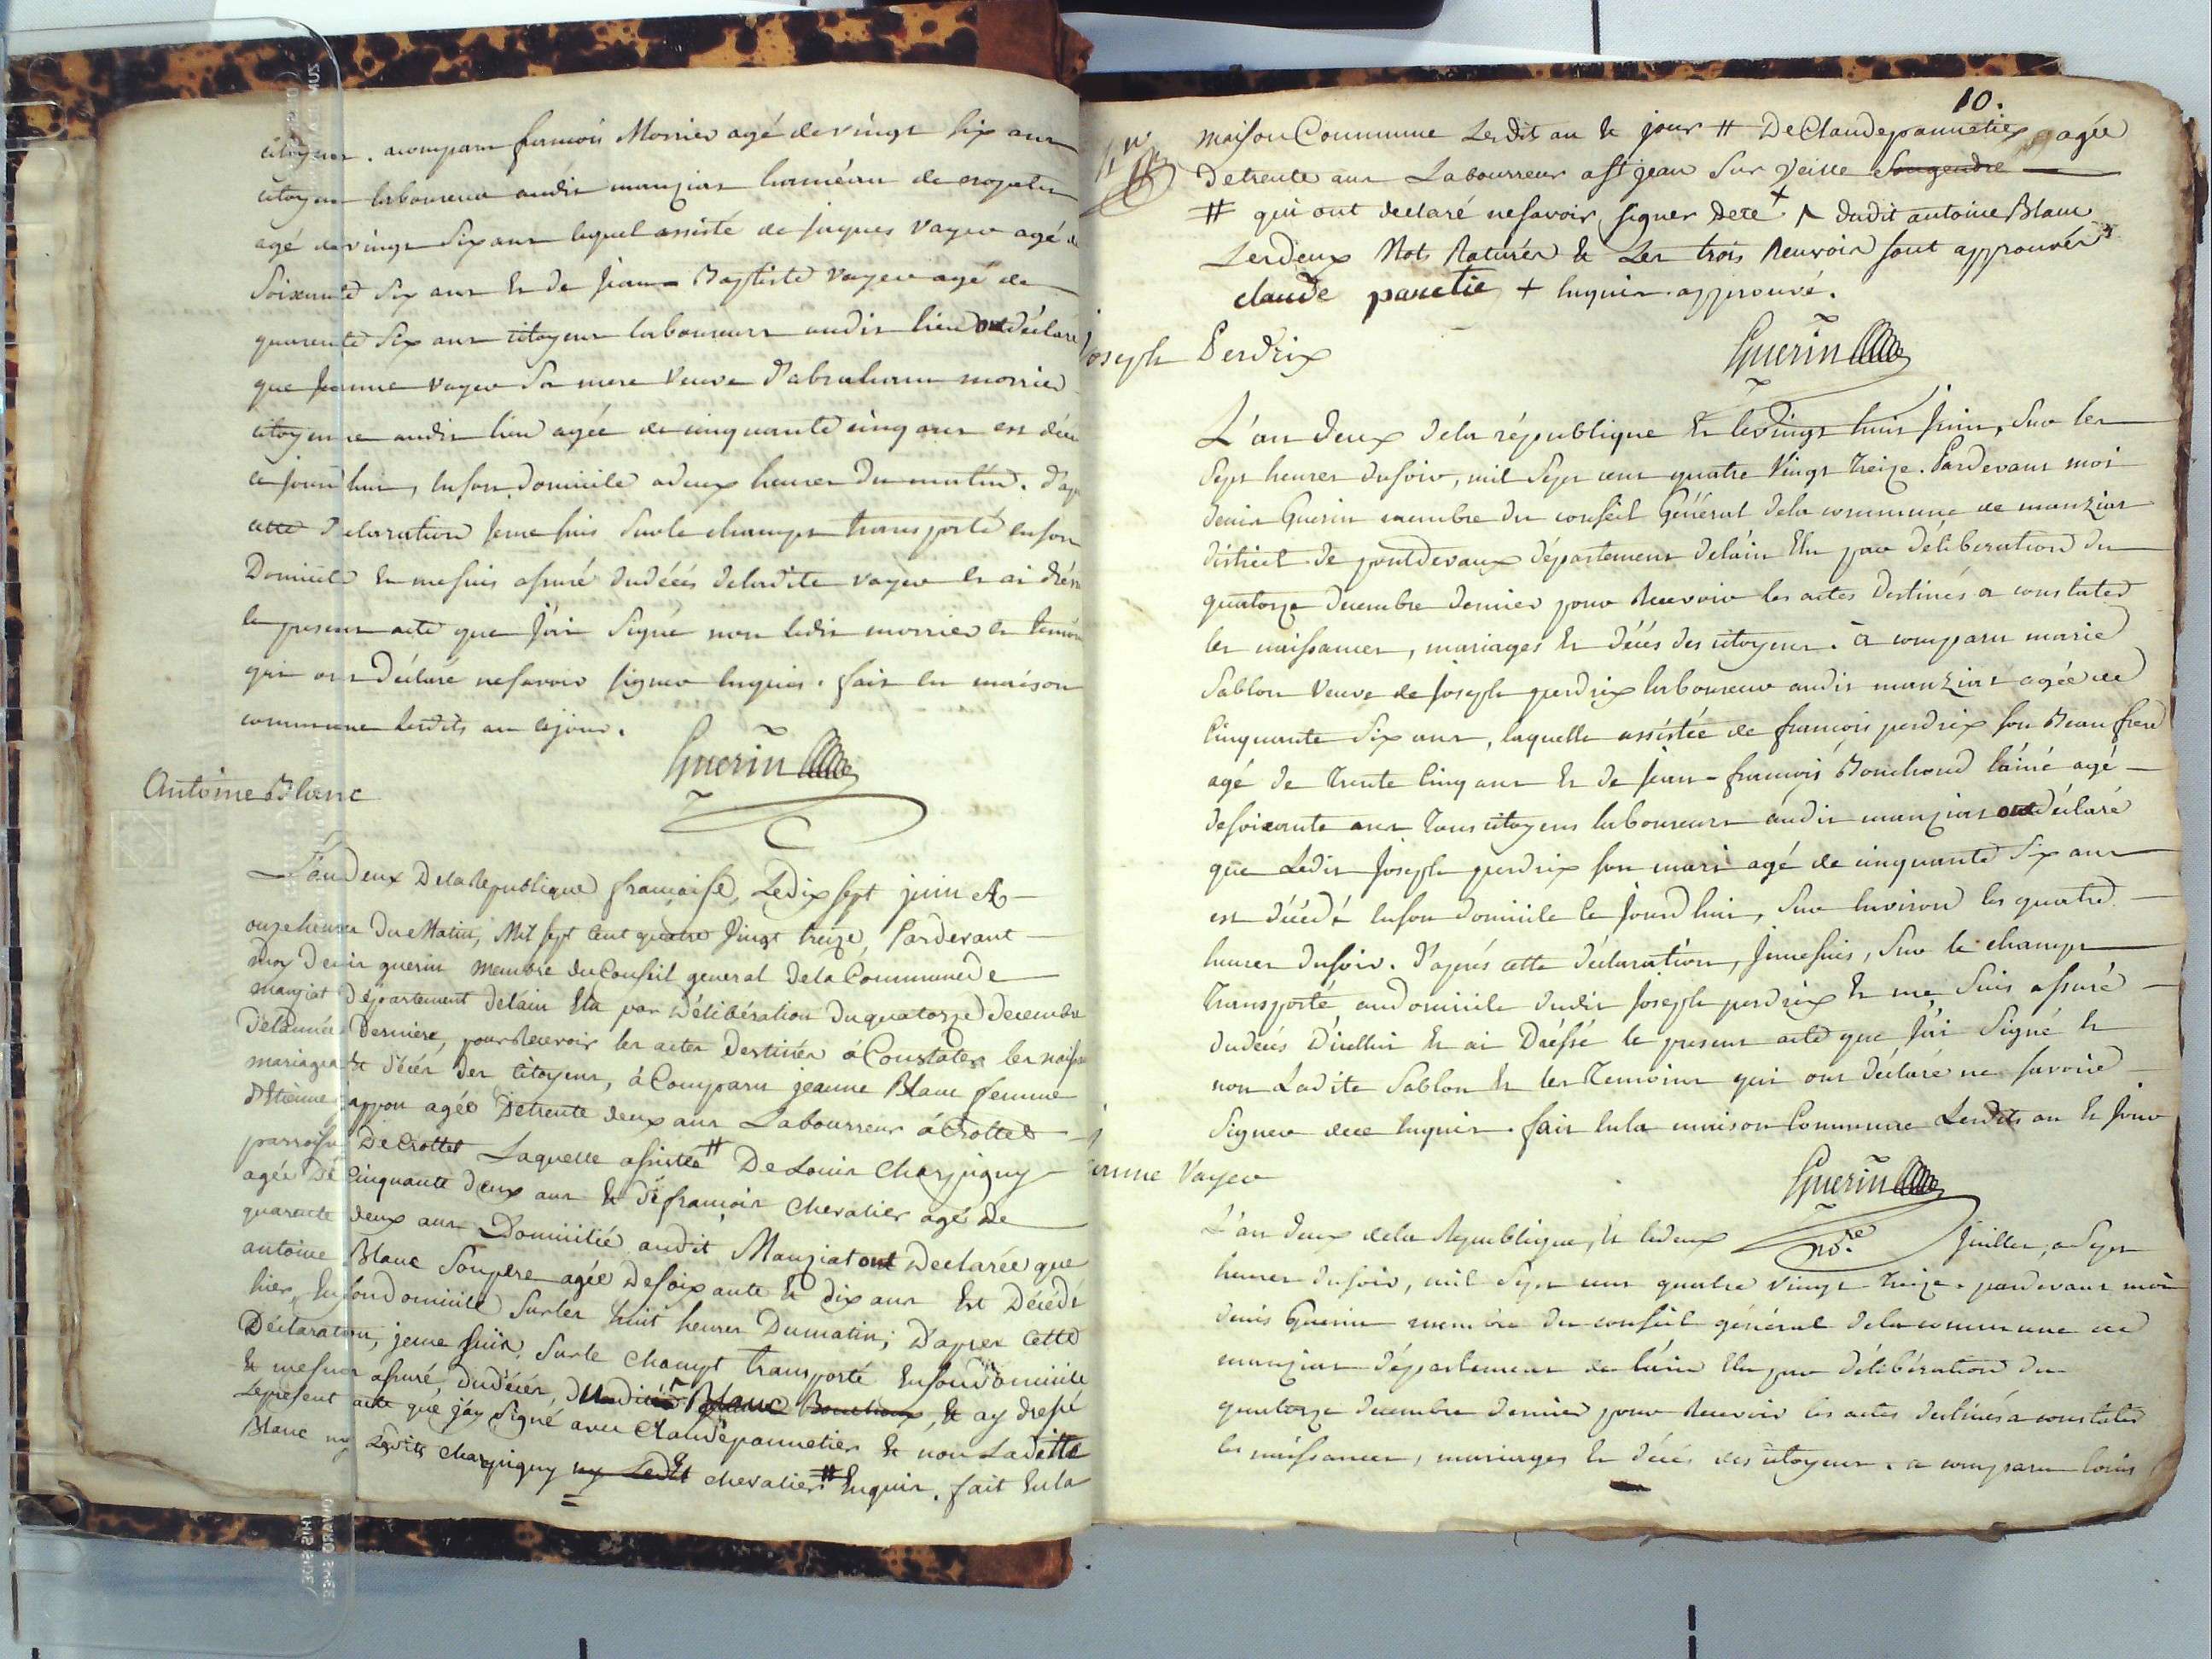 citoyens. acomparu francois Morrier agé de vingt six ans
citoyen laboureur audit manziat hameau de
agé de vingt six ans lequel assisté de jaques Vayer agé de
Soixante Six ans & de jean-Baptiste Vayer agé de
quarente Six ans citoyens laboureurs audit lieu ont déclaré
que jeanne Vayer Sa mere Veuve d'abraham morrier
citoyenne audit lieu agée de cinquante cinq ans est
ce jourd'hui, En son domicile a deux heures du matin. d'ap
cette declaration je me suis Sur le champt transporté en son
Domicile & me suis assuré du décés de ladite Vayer & ai
le present acte que j'ai Signé non ledit morrier & temoin
qui ont déclaré ne savoir signer Enquis. fait En maison
commune lesdits an & jour.
Guerin
Antoine Blanc
L'an Deux De la Republique francaise, Le dix sept juin A
onze heures Du Matin, Mil sept Cent quatre Vingt treize, Pardevant
moy Denis guerin Membre du Conseil general De la Commune de
manziat Département de l'ain Elu par Délibération du quatorze Decembre
De l'année Derniere, pour Recevoir les actes Destinés à Constater les naiss
mariages & décés des Citoyens, à Comparu jeanne Blanc femme
d'Etienne jappon agée De trente deux ans Laboureur à Crottet
parroisse De Crottet Laquelle assistée # De Louis Charpigny
agée De Cinquante deux ans & de francois Chevalier agé de
quarente deux ans Domicilié audit Manziat ont Declarée que
antoine Blanc Son pere agée De soixante & dix ans Est Décédé
hier, En son domicile Sur les huit heures Du matin; D'apres Cette
Déclaration, je me suis Sur le Champt transporté En son domicile
& me suis assuré du décés, Blanc, & ay dressé
Le present acte que j'ay Signé avec Claude pannetier & non Laditte
Blanc ny Ledits Charpigny ny Ledit chevalier # Enquis. fait En la
10.
maison Commune Lesdit an & jour # De Claude pannetier agée
De trente ans Labourreur a St jean Sur Veisle Son gendre
# qui ont declaré ne savoir signer De ce + dudit antoine Blanc
Les deux Mots Raturés & Les trois Renvois sont approuvés
claude panetie + Enquis approuvé.
Guerin
Joseph Perdrix
L'an deux de la république & le vingt huit juin, Sur les
Sept heures du soir, mil Sept cent quatre Vingt treize. Pardevant moi
denis Guerin membre du conseil Général de la commune de manziat
district de pontdevaux département de l'ain Elu par délibération du
quatorze decembre dernier pour Recevoir les actes destinés a constater
les naissances, mariages & décés des citoyens. à comparu marie
Sablon Veuve de joseph perdrix laboureur audit manziat agée de
Cinquante Six ans, laquelle assistée de francois perdrix son Beau frere
agé de trente Cinq ans & de jean-francois Bouchoud l'ainé agé
de soixante ans tous citoyens laboureurs audit manziat ont déclaré
que Ledit joseph perdrix son mari agé de cinquante Six ans
est décédé En son domicile ce jourd'hui, Sur Environ les quatre
heures du soir. d'après cette déclaration, je me suis, Sur le champt
Transporté au domicile dudit joseph perdrix & me Suis assuré
du décés d'icelluy & ai Dréssé le present acte que j'ai Signé &
non Ladite Sablon & les Temoins qui ont déclaré ne savoir
Signer de ce Enquis. fait En la maison Commune Lesdits an & jour
Guerin
Jeanne Vayer
L'an deux de la Republique, & le deux juillet, a Sept
heures du soir, mil Sept cent quatre Vingt Treize. pardevant moi
denis Guerin membre du conseil général de la commune de
manziat département de l'ain Elu par délibération du
quatorze decembre dernier pour Recevoir les actes destinés a constater
les naissances, mariages & décés des citoyens. a comparu louis